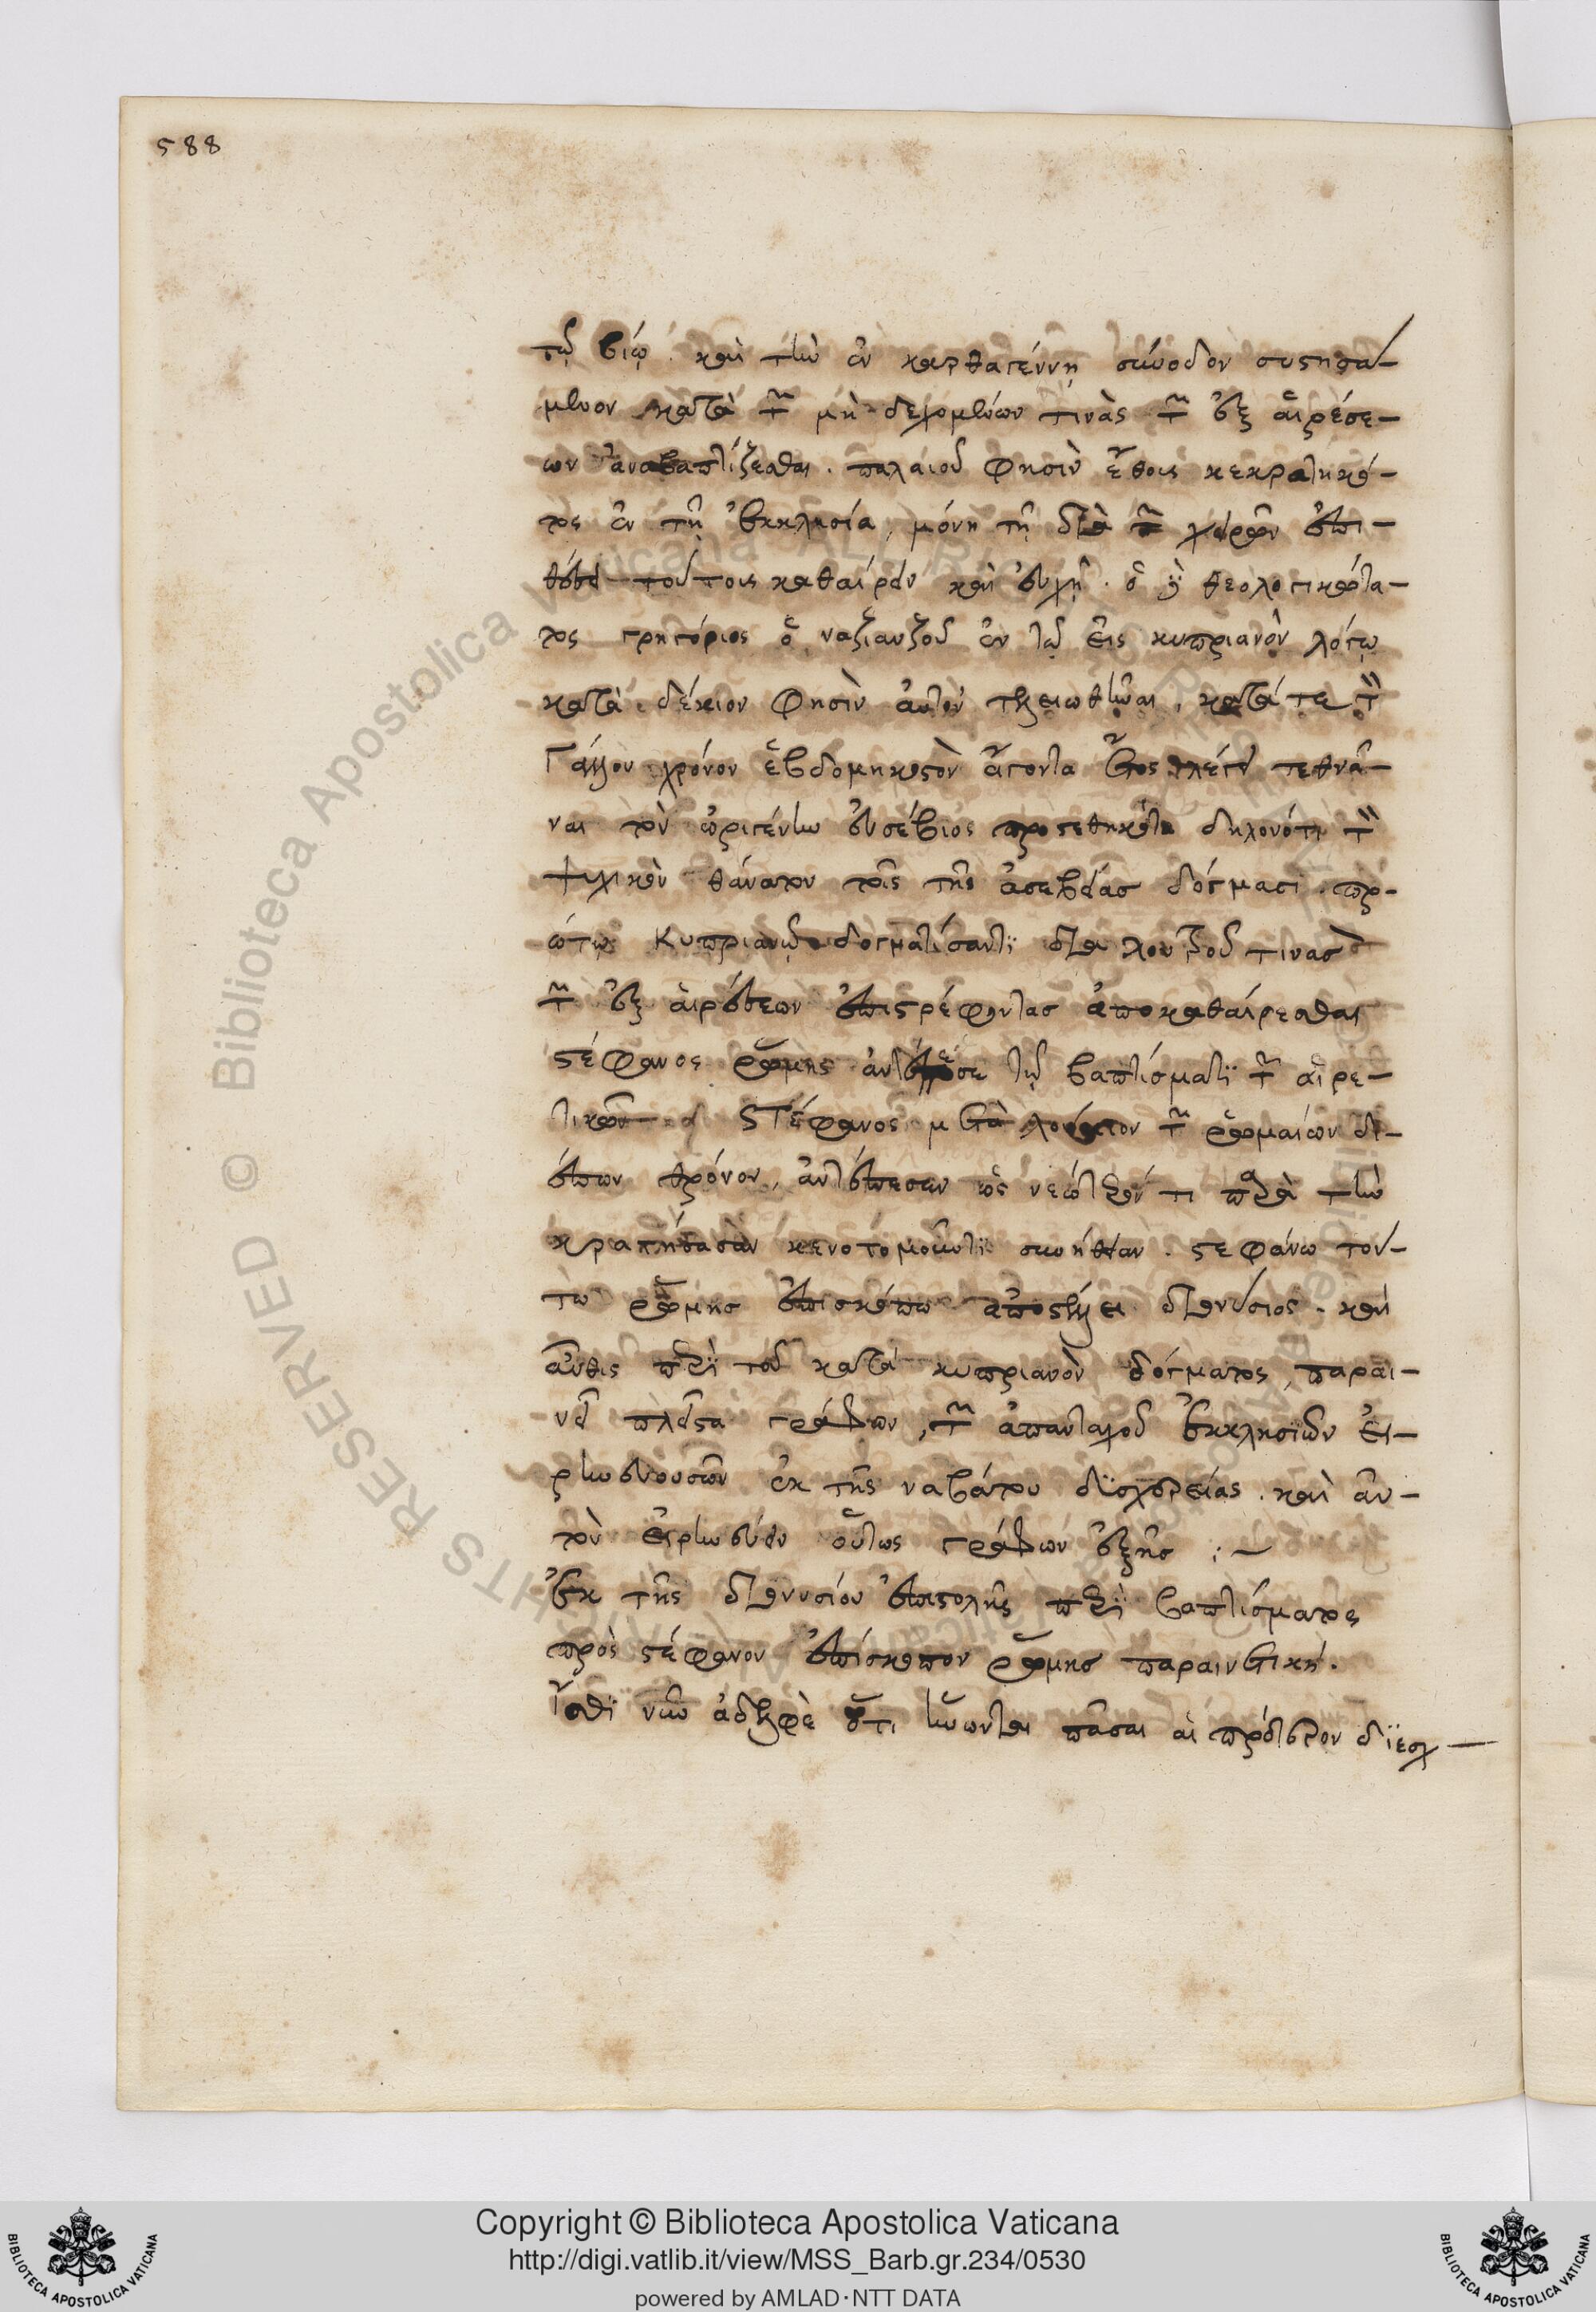 588
τῷ βίῳ. καὶ τὴν ἐν καρθαγέννῃ σύνοδον συστησά-
μενον κατὰ τῶν μὴ δεχομένων τινὰς τῶν ἐξ αἱρέσε-
ων ἀναβαπτίζεσθαι. παλαιοῦ φησὶν ἔθους κεκρατηκό-
τος ἐν τῇ ἐκκλησίᾳ, μόνῃ τῇ διὰ τῶν χειρῶν ἐπι-
θέσει τούτοις καθαίρειν καὶ εὐχῇ. ὁ δὲ θεολογικώτα-
τος γρηγόριος ὁ ναζιανζοῦ ἐν τῷ εἰς κυπριανὸν λόγῳ
κατὰ δέκιον φησὶν αὐτὸν τελειωθῆναι, κατά τε τὸν
Γάλλον χρόνον ἑβδομηκοστὸν ἄγοντα ἔτος λέγει τεθνᾶ-
ναι τὸν ὠριγένην εὐσέβιος προστεθηκότα δηλονότι τὸν
ψυχικὸν θάνατον τοῖς τῆς ἀσεβείας δόγμασι. πρ-
ώτῳ Κυπριανῷ δογματίσαντι διὰ λουτροῦ τινας
τῶν ἐξ αἱρέσεων ἐπιστρέφοντας ἀποκαθαίρεσθαι
στέφανος ῥώμης ἀντέπεσε τῷ βαπτίσματι τῶν αἱρε-
τικῶν Στέφανος μετὰ λούκιον τῶν ῥωμαίων δι-
έπων θρόνον, ἀντέπεσαν ὡς νεώτερόν τι παρὰ τὴν
κρατήσασαν κενοτομοῦντι συνήθειαν. στεφάνω τού-
τω ῥώμης ἐπισκόπω ἀποστέλλει διονύσιος. καὶ
αὖθις περὶ τοῦ κατὰ κυπριανὸν δόγματος, παραι-
νεῖ πλεῖστα γράφων, τῶν ἁπανταχοῦ ἐκκλησιῶν εἰ-
ρηνευουσῶν ἐκ τῆς ναβάτου δϊοχλείας. καὶ αὐ-
τὸν εἰρηνεύειν οὕτως γράφων ἑξῆς :~
Ἐκ τῆς διονυσίου ἐπιστολῆς περὶ βαπτίσματος
πρὸς στέφανον ἐπίσκοπον ῥώμης παραινετική.
Ἴσθι νῦν ἀδελφὲ ὅτι ἥνωνται πᾶσαι αἱ πρότερον δϊεσχ-
Copyright © Biblioteca Apostolica Vaticana
http://digi.vatlib.it/view/MSS_Barb.gr.234/0530
powered by AMLAD·NTT DATA